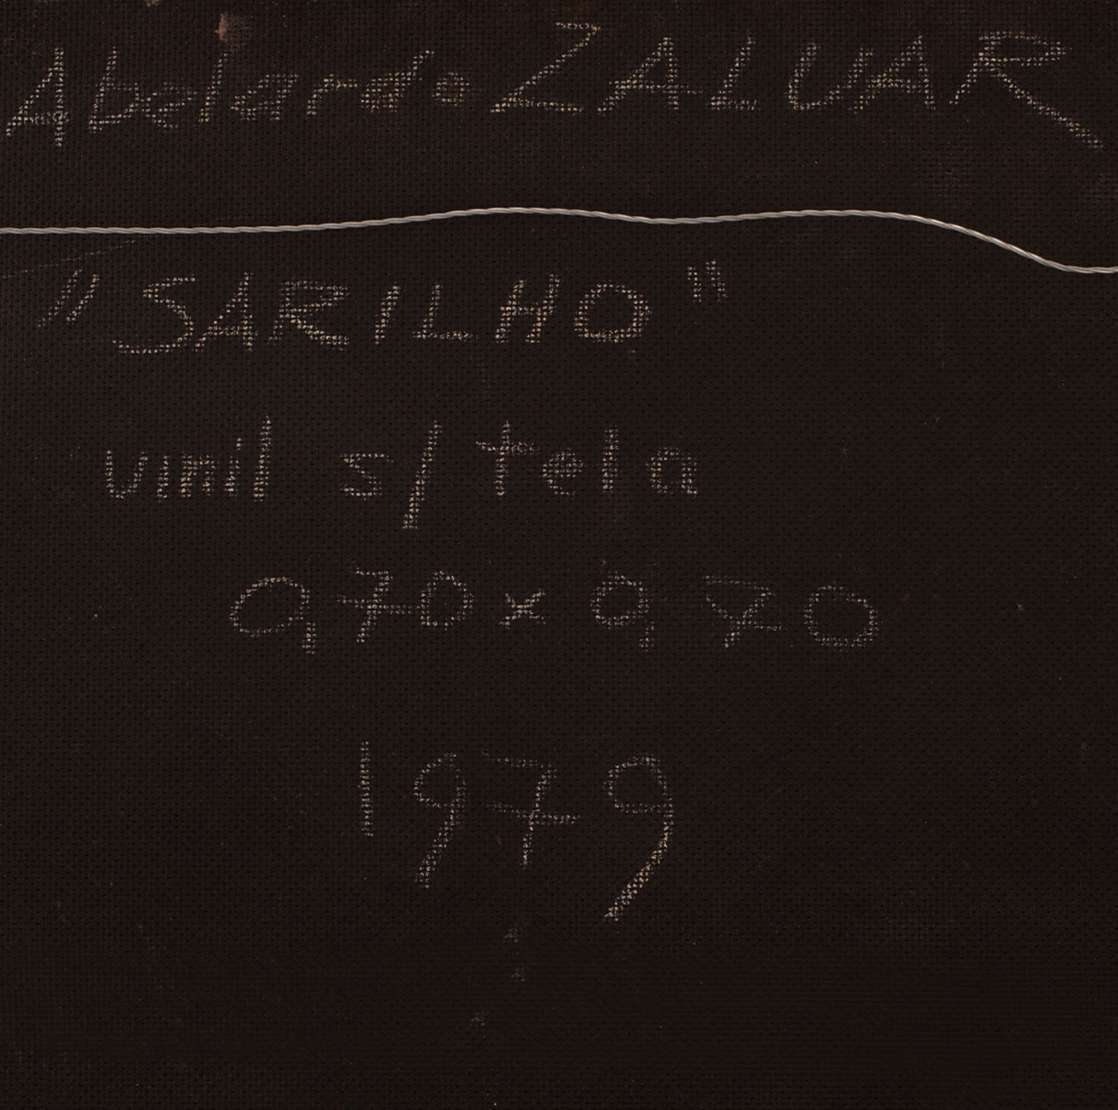 Abelardo ZALUAR
"SARILHO"
vinil s/ tela
970 x 970
1979